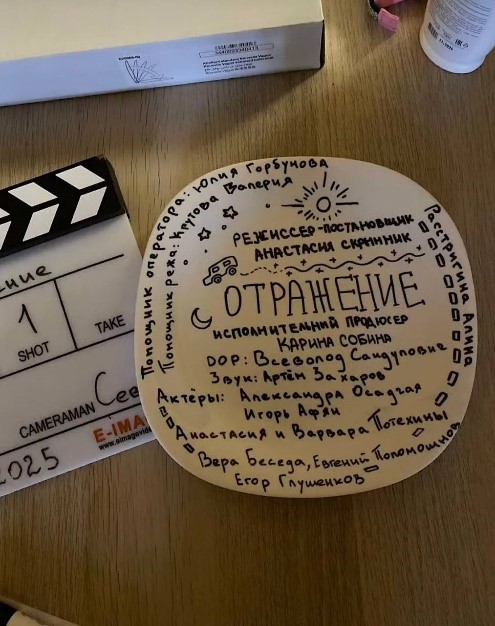 Помощник оператора: Юлия Горбунова
Помощник режа: Крутова Валерия
РЕЖИССЕР-ПОСТАНОВЩИК
АНАСТАСИЯ СКРИННИК
ОТРАЖЕНИЕ
ИСПОЛНИТЕЛЬНЫЙ ПРОДЮСЕР
КАРИНА СОБИНА
DOP: Всеволод Сандулович
Звук: Артём Захаров
Актёры: Александра Осадчая
Игорь Афян
Анастасия и Варвара Потехины
Вера Беседа, Евгений Поломошнов
Егор Глушенков
Расстригина Алина
ение
1
SHOT
TAKE
CAMERAMAN Сев
E-IMA
www.eimagevide
2025